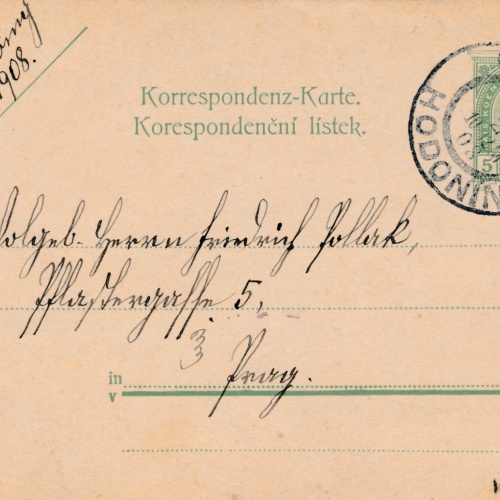 1908.
Korrespondenz-Karte.
Korespondenční lístek.
HODONIN
5
Wolgeb. Herrn Friedrich Pollak,
Pflastergasse 5.
3
3
in Prag.
v